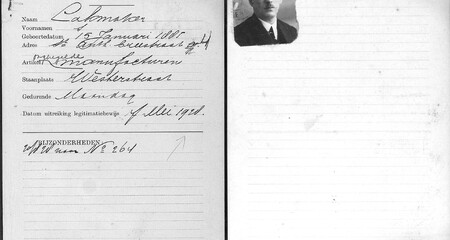 Naam Lakmaker
Voornamen S
Geboortedatum 15 Januari
Adres St Anth. Breestraat
Artikel manufacturen
Staanplaats Westerstraat
Gedurende Maandag
Datum uitreiking legitimatiebewijs 4 Mei 1928.
BIJZONDERHEDEN:
naar No 264